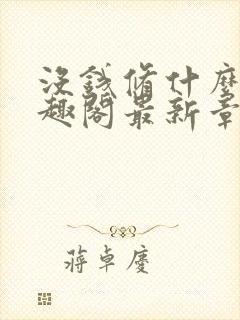 没錢偹什麼
趣閣最新章
蔣卓慶